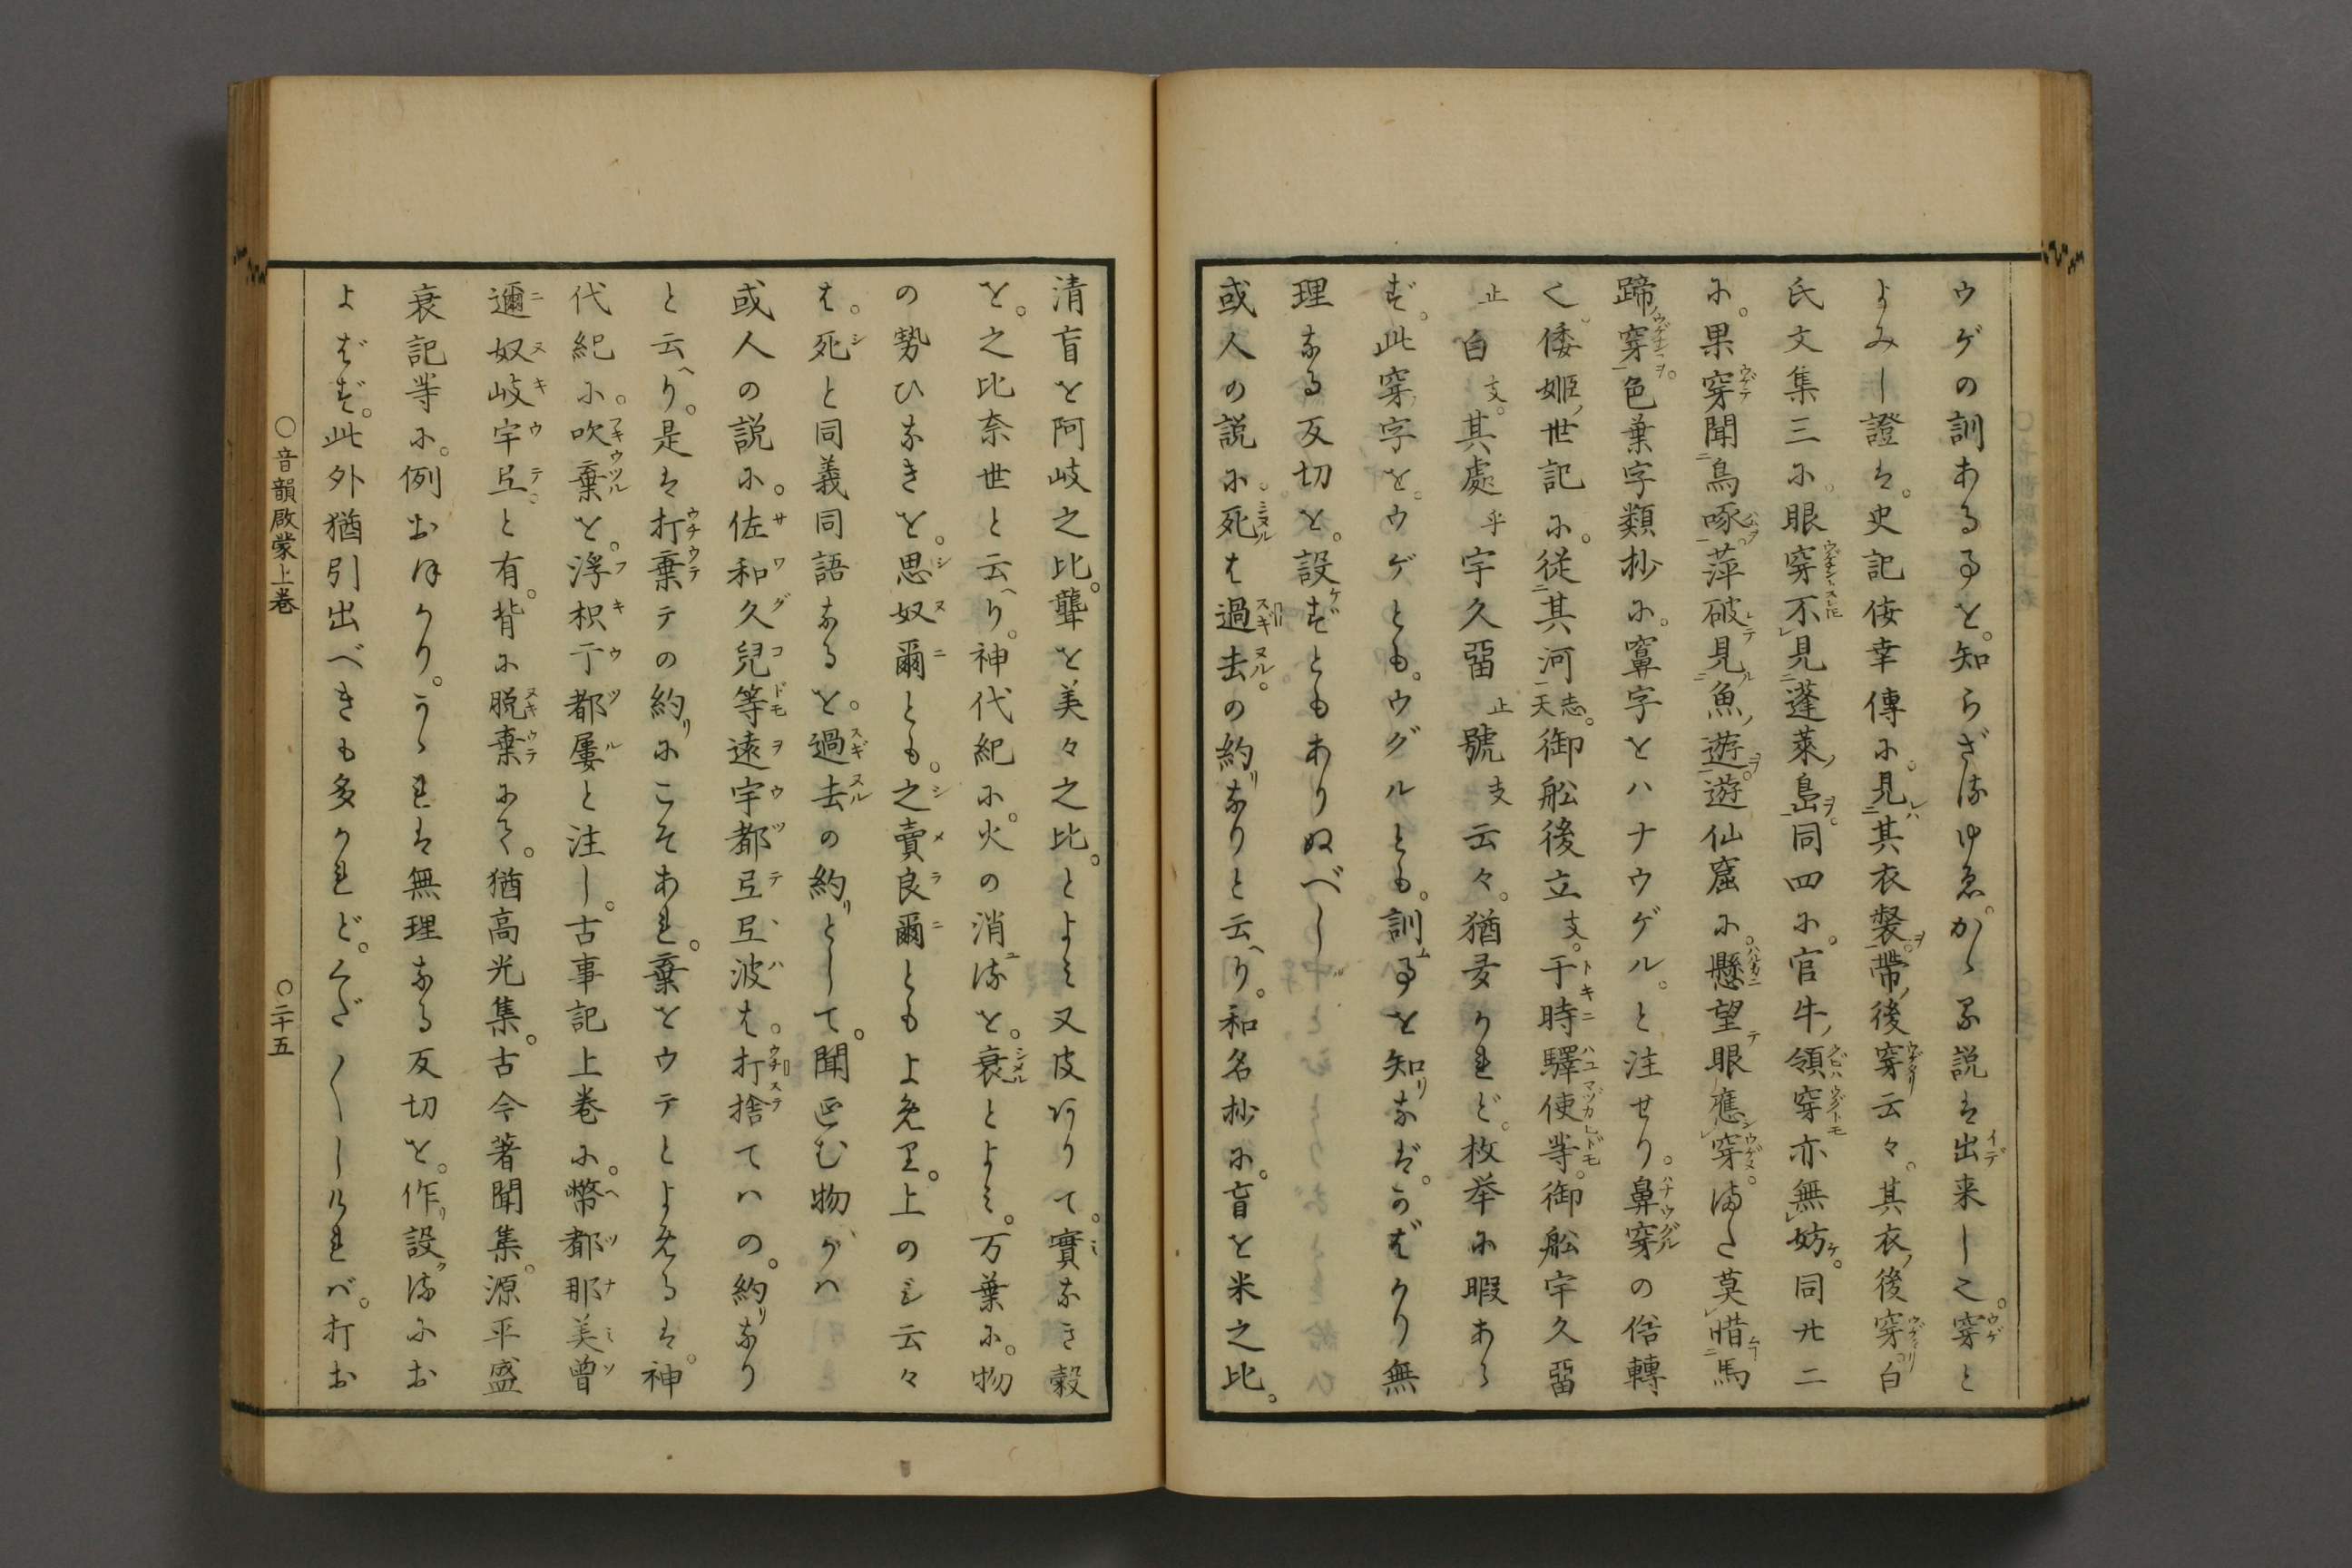 ウゲの訓あるヿを。知らざるゆゑ。かゝる説は出来しこ。穿と
よみし證は。史記佞幸傳に。見其衣裻帶後穿云々。其衣後穿白
氏文集三に。眼穿不見蓬萊島。同四に。官牛領穿亦無妨。同廿二
に。果穿聞鳥啄。萍破見魚遊。遊仙窟に。懸望眼應穿。また莫惜馬
蹄穿。色葉字類抄に。䆿字をハナウゲル。と注せり。鼻穿の俗轉
く。倭姬世記に。従其河天志。御舩後立支。于時驛使等。御舩宇久畱
止白支。其處乎宇久畱止號支云々。猶多かれど。枚挙に暇あら
ず。此穿字を。ウゲとも。ウグルとも。訓ヿを知なば。かばかり無
理なる反切を。設ずともありぬべし
或人の説に。死は過去の約なりと云へり。和名抄に。盲を米之比。
清盲を阿岐之比。聾を美々之比。とよみ又皮ありて。實なき穀
を。之比奈世と云へり。神代紀に。火の消るを。衰とよみ。万葉に。物
の勢ひなきを。思奴爾とも。之賣良爾ともよめり。上のシ云々
は。死と同義同語なるを。過去の約として。聞ゑむ物かハ
或人の説に。佐和久兒等遠宇都弖弖波は。打捨てハの。約なり
と云へり。是は打棄テの約にこそあれ。棄をウテとよめるは。神
代紀に。吹棄を。浮枳于都屢と注し。古事記上巻に。幣都那美曽
邇奴岐宇弖。と有。背に脱棄にて。猶高光集。古今著聞集。源平盛
衰記等に。例おほかり。かゝれは無理なる反切を。作設るにお
よばず。此外猶引出べきも多かれど。くだ〱しければ。打お
○音韻啟蒙上巻　○二十五